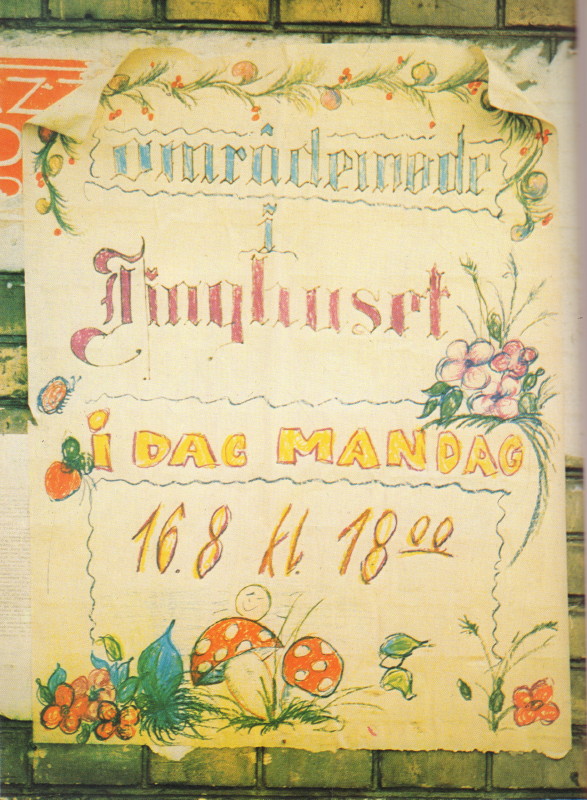 områdemøde
i
Tinghuset
i DAG MANDAG
16.8 kl. 18 00